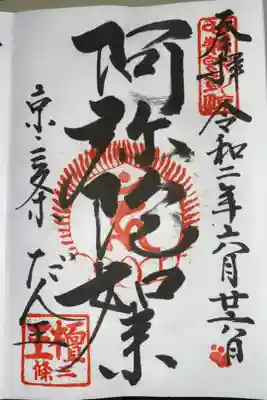 奉拝
令和二年六月廿六日
阿弥陀如来
京・三条
だん王
檀王
三條